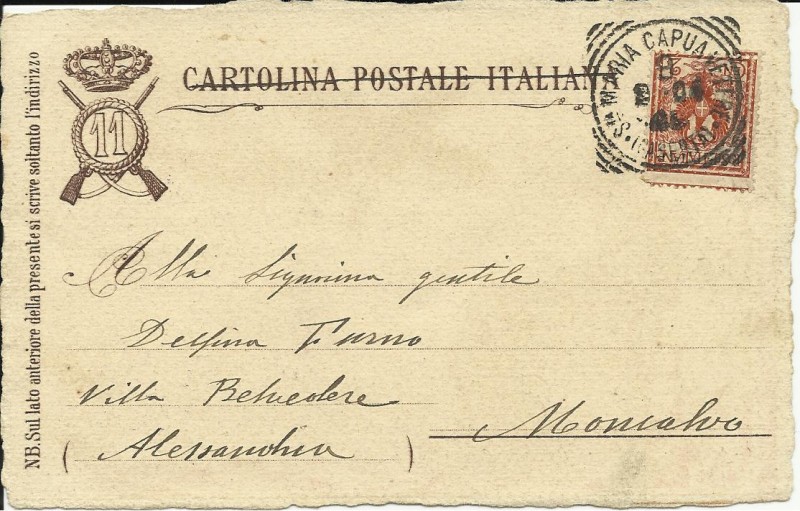 CARTOLINA POSTALE ITALIANA
11
S. MARIA CAPUA VETERE
(CASERTA)
NB. Sul lato anteriore della presente si scrive soltanto l'indirizzo
Alla Signorina gentile
Delfina Furno
Villa Belvedere
Moncalvo
(Alessandria)